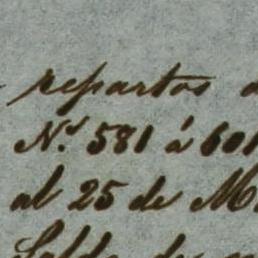 repartos
N.ᵒˢ 581 á 601
al 25 de M
Saldo de